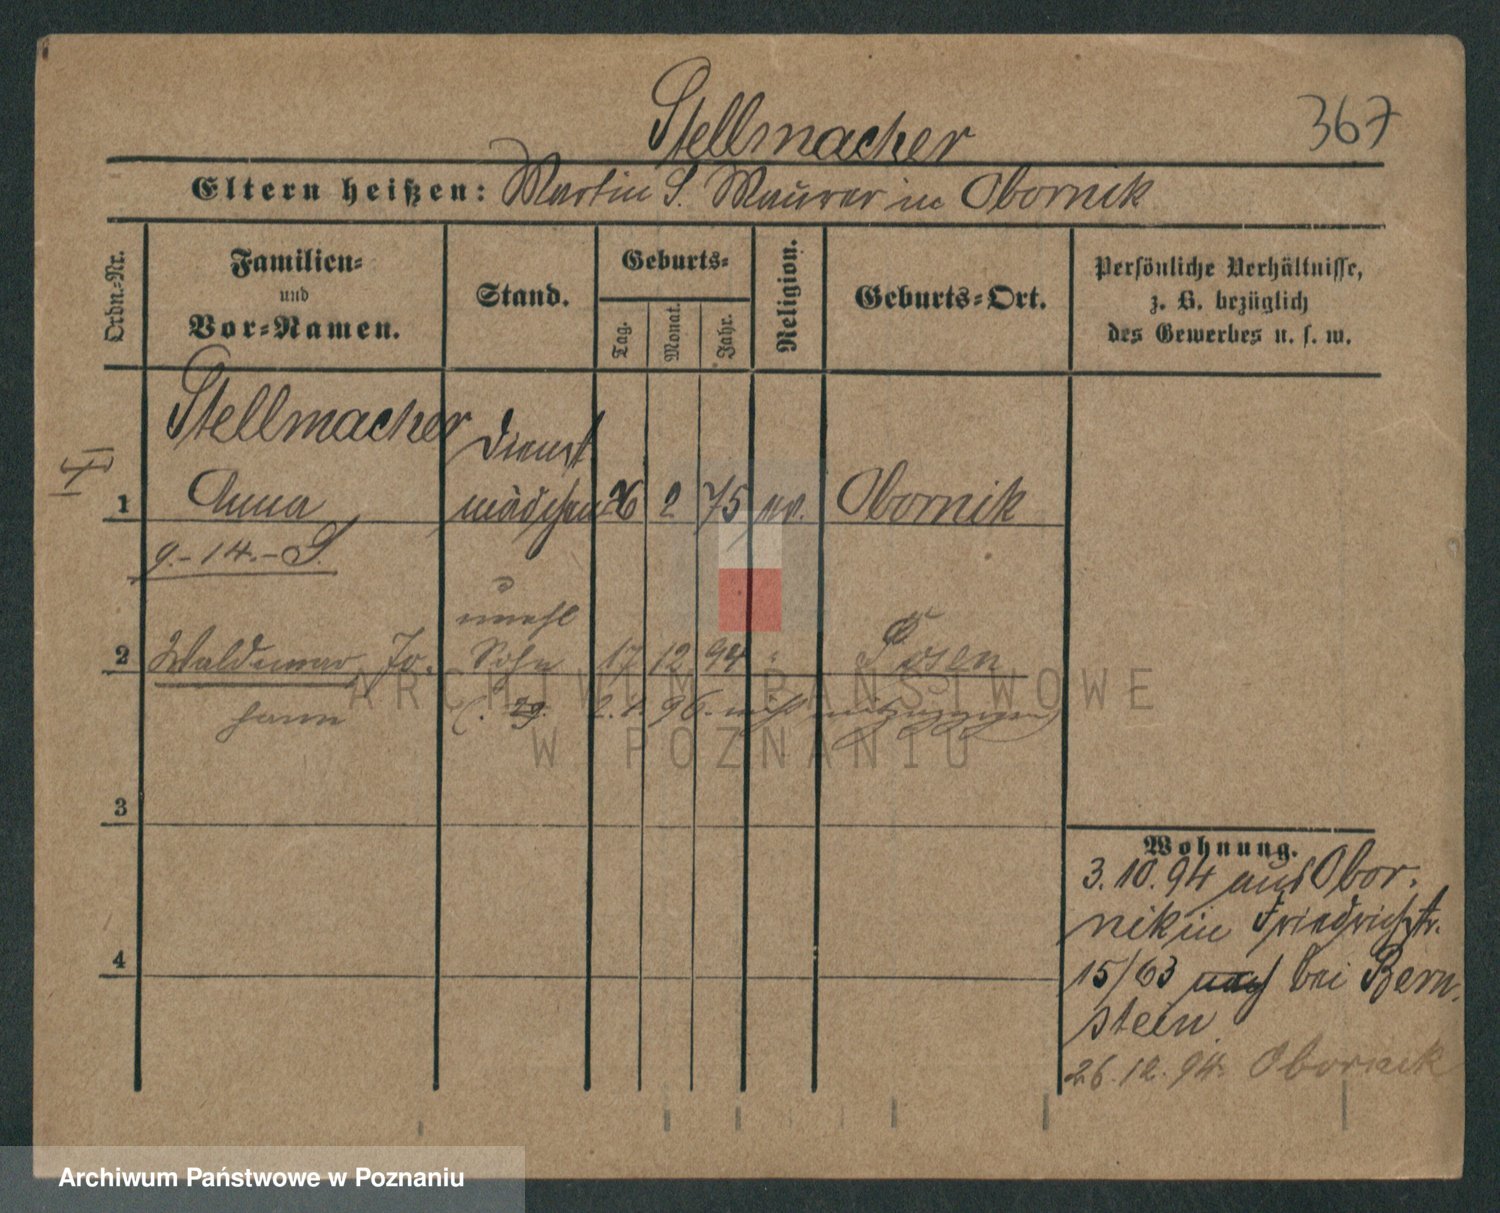 Stellmacher
367
Eltern heißen: Martin S. Maurer in Obornik
Ordn.-Nr.
Familien-
und
Vor-Namen.
Stand.
Geburts-
Tag.
Monat.
Jahr.
Religion.
Geburts-Ort.
Persönliche Verhältnisse,
z. B. bezüglich
des Gewerbes u. s. w.
Stellmacher Dienst
1 Anna mädchen 26 2 75 ev. Obornik
9.-14.-S.
unehl
2 Waldemar Jo- Sohn 17 12 94 " Posen
hann 29. 2. 1. 96. nicht
3
4
Wohnung.
3.10.94 aus Obor-
nik in Friedrichstr.
15/63 nach bei Bern-
stein
26.12.94. Obornik
ARCHIWUM PAŃSTWOWE
W POZNANIU
Archiwum Państwowe w Poznaniu